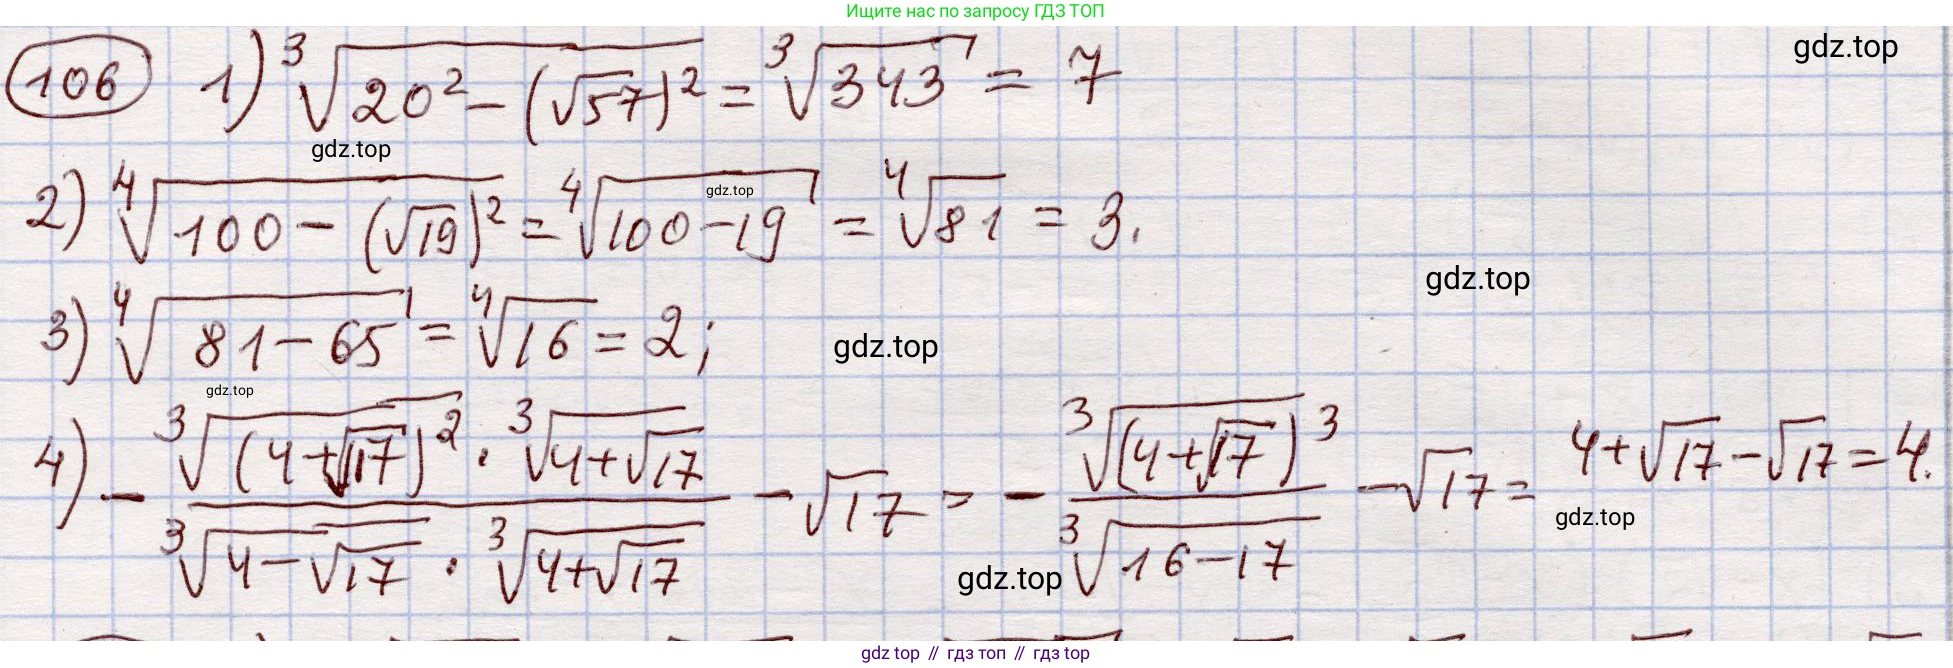 Ищите нас по запросу ГДЗ ТОП
106 1) ∛(20² − (√57)²) = ∛343 = 7
gdz.top
gdz.top
2) ∜(100 − (√19)²) = ∜(100 − 19) = ∜81 = 3.
gdz.top
gdz.top
3) ∜(81 − 65) = ∜16 = 2;
gdz.top
gdz.top
4) − (∛((4+√17)²) · ∛(4+√17)) / (∛(4−√17) · ∛(4+√17)) − √17 = − ∛((4+√17)³) / ∛(16−17) − √17 = 4+√17−√17 = 4.
gdz.top
gdz.top
gdz top // гдз топ // гдз top